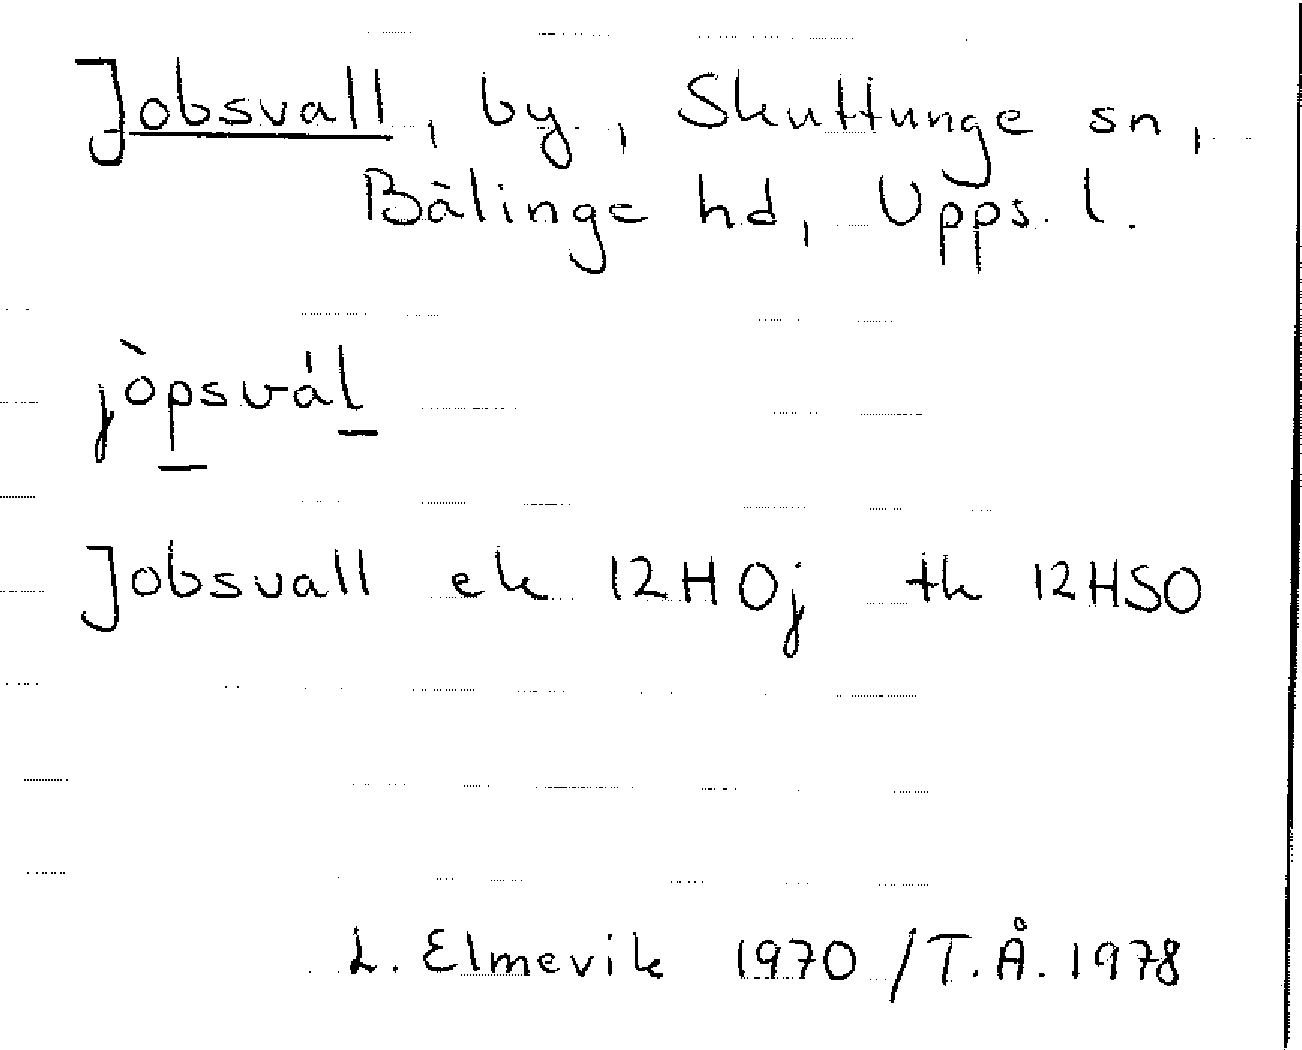 Jobsvall, by, Skuttunge sn,
Bälinge hd, Upps. l.
jòpsvál
Jobsvall ek 12HOj tk 12HSO
L. Elmevik 1970 /T.Å. 1978